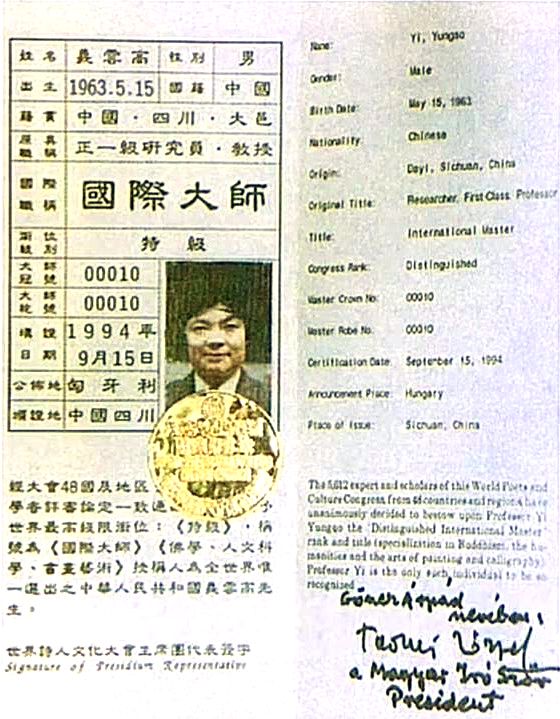 姓名 義雲高 性別 男
出生 1963.5.15 國籍 中國
籍貫 中國·四川·大邑
原具職稱 正一級研究員·教授
國際職稱 國際大師
銜位級別 特級
大師冠號 00010
大師袍號 00010
填證日期 1994年9月15日
公佈地 匈牙利
填證地 中國四川
經大會48國及地區
學者評審論定一致通
世界最高級限銜位：《特級》，稱
號為《國際大師》《佛學、人文科
學、書畫藝術》授稱人為全世界唯
一選出之中華人民共和國義雲高先
生。
世界詩人文化大會主席團代表簽字
Signature of Presidium Representative
Name: Yi, Yungao
Gender: Male
Birth Date: May 15, 1963
Nationality: Chinese
Origin: Dayi, Sichuan, China
Original Title: Researcher, First-Class, Professor
Title: International Master
Congress Rank: Distinguished
Master Crown No: 00010
Master Robe No: 00010
Certification Date: September 15, 1994
Announcement Place: Hungary
Place of Issue: Sichuan, China
The 5,612 expert and scholars of this World Poets and
Culture Congress from 48 countries and regions have
unanimously decided to bestow upon Professor Yi
Yungao the "Distinguished International Master"
rank and title (specialization in Buddhism, the hu-
manities and the arts of painting and calligraphy).
Professor Yi is the only such individual to be so
recognized.
Göncz Árpád
nevében:
a Magyar Író Szöv
President